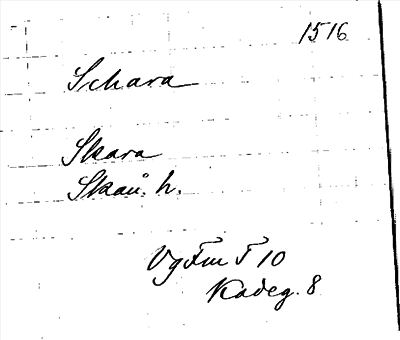 1516
Schara
Skara
Skån. h.
VgFm F 10
Kadeg. 8